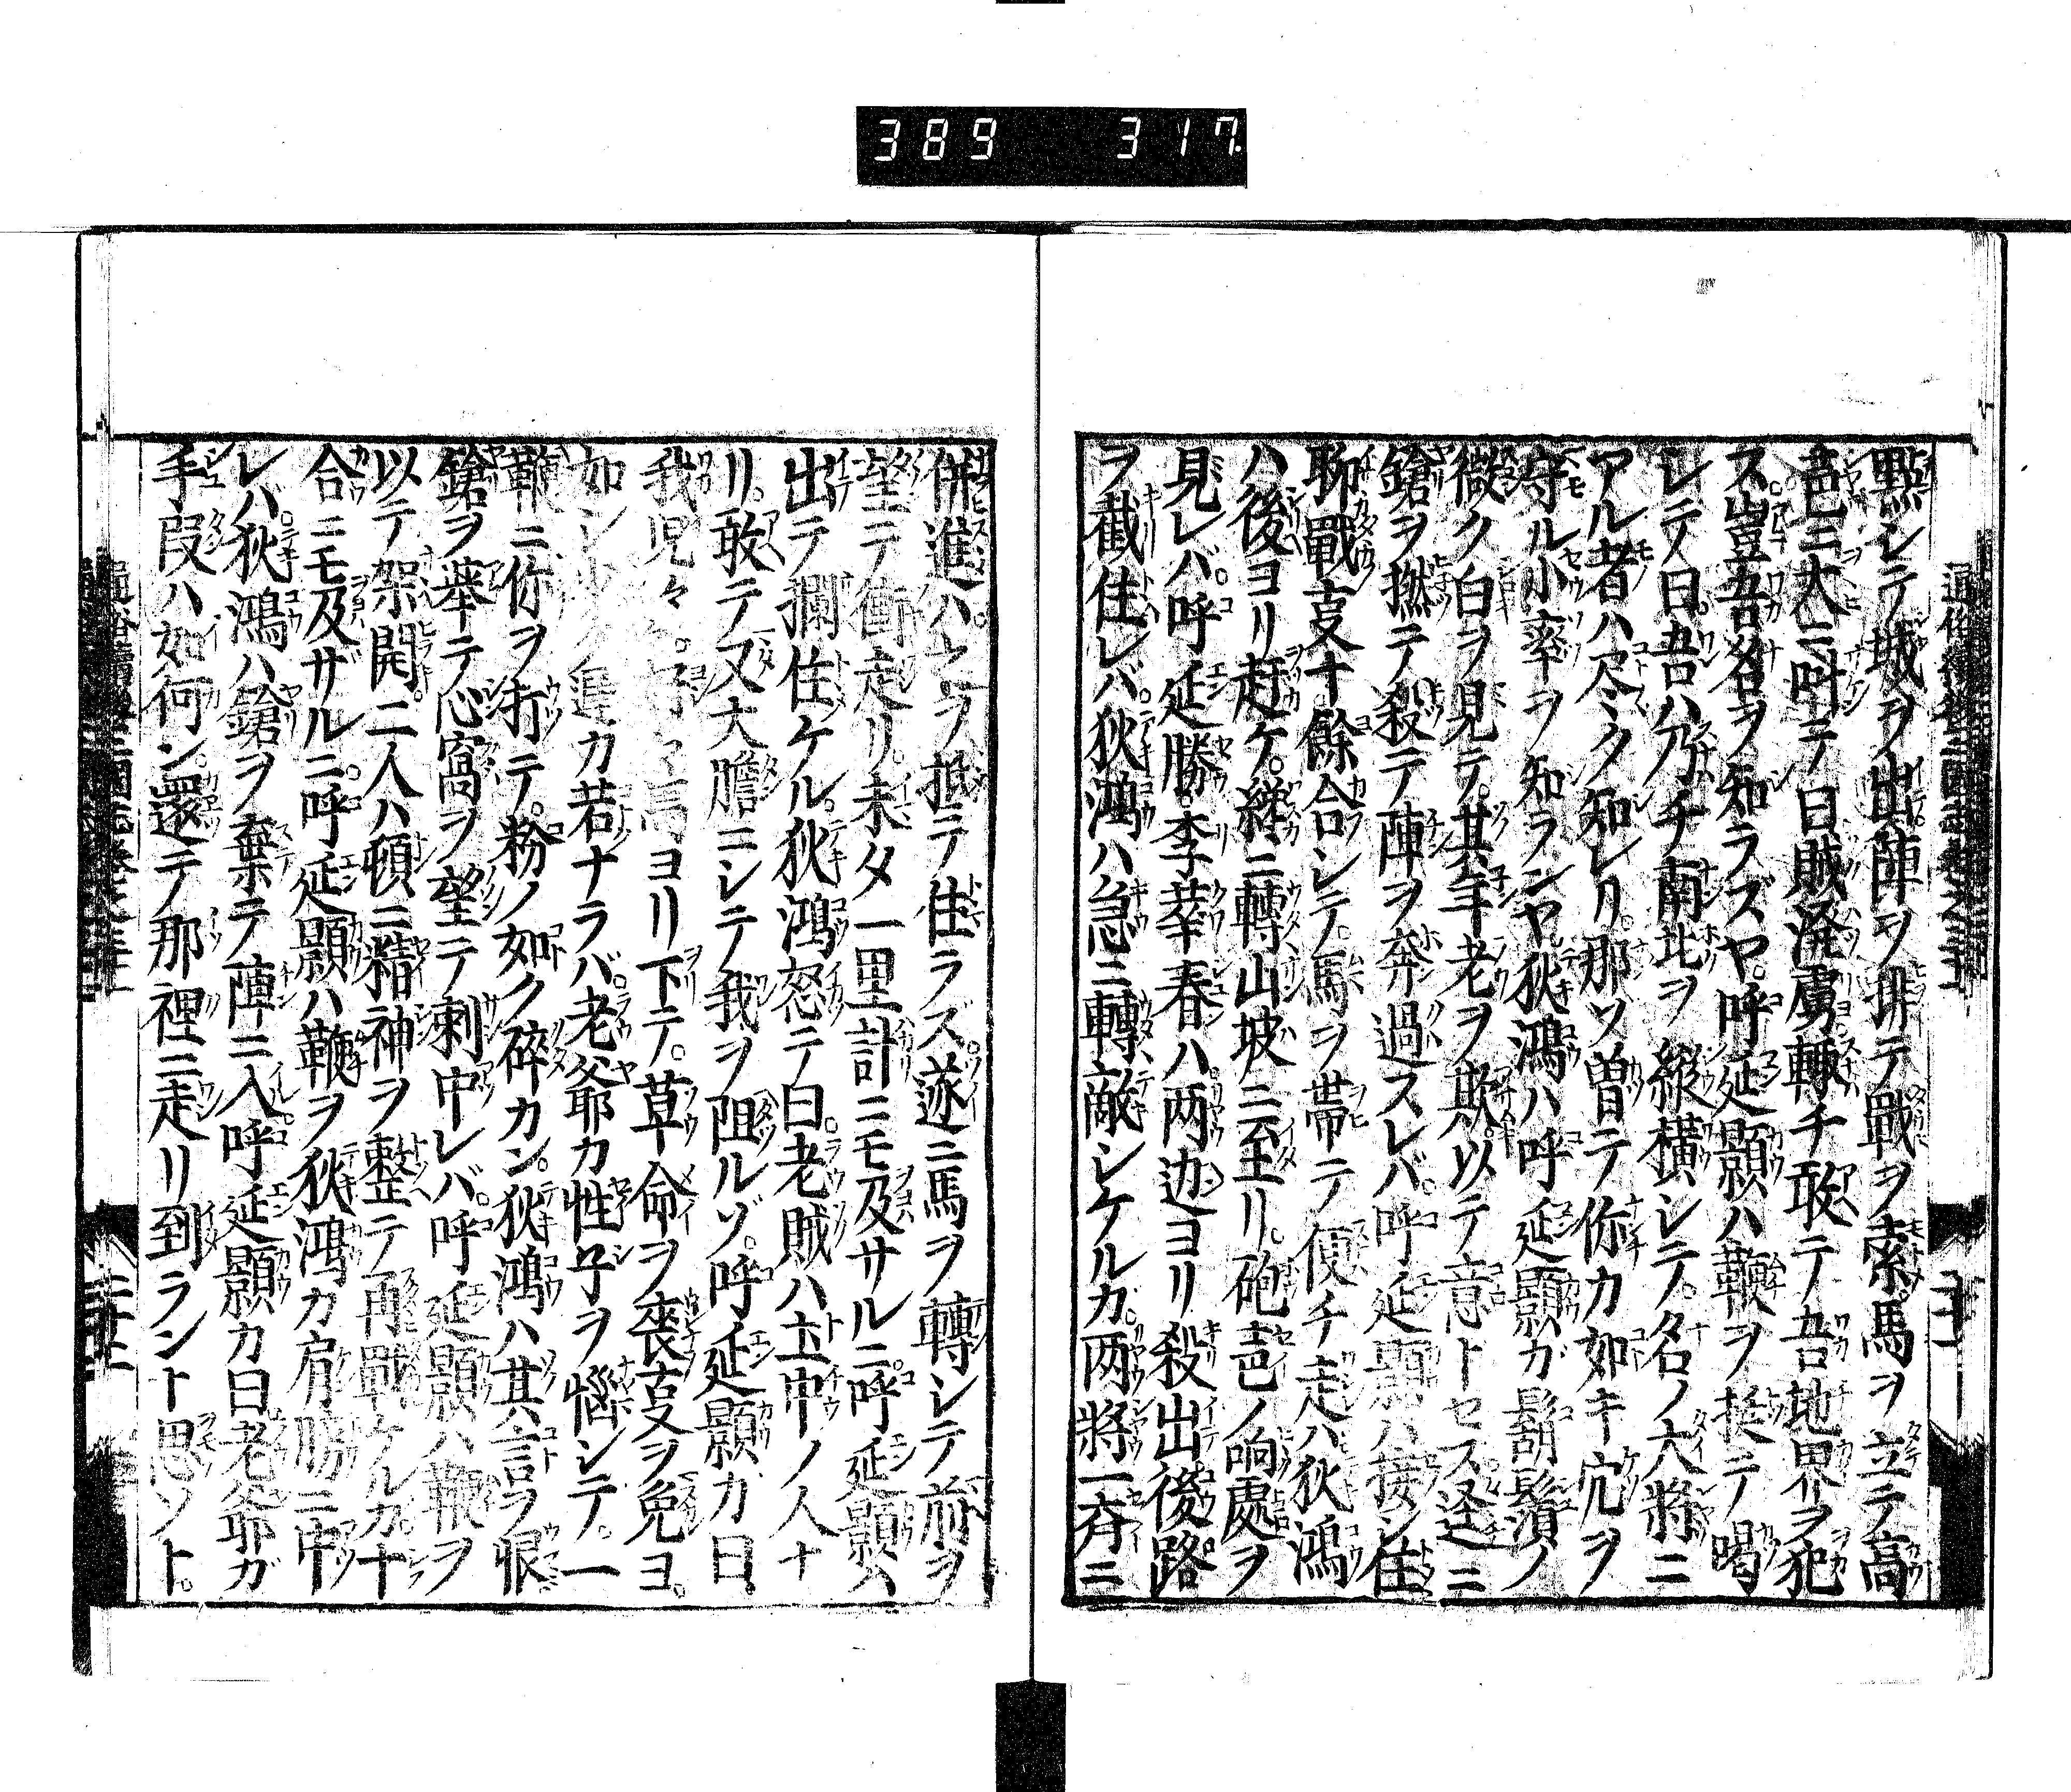 389 317
點シテ城ヲ出陣ヲ排テ戰ヲ索馬ヲ立テ高
声ニ大ニ叫テ曰賊潑虜輙チ敢テ吾地界ヲ犯
ス豈吾名ヲ知ラズヤ呼延顥ハ鞭ヲ挺テ喝
シテ曰吾ハ乃チ南北ヲ縱橫シテ名ノ大將ニ
アル者ハ尽ク知レリ那ソ曽テ你カ如キ宂ヲ
守ル小率ヲ知ランヤ狄鴻ハ呼延顥ガ鬍鬚ノ
微ク白ヲ見テ其年老ヲ欺以テ意トセス逕ニ
鎗ヲ撚テ殺テ陣ヲ奔過スレバ呼延顥ハ接シ住
聊戰支十餘合シテ馬ヲ帯テ便チ走ハ狄鴻
ハ後ヨリ赶ケ纔ニ轉山坡ニ至リ砲声ノ响處ヲ
見レバ呼延勝李莘春ハ两边ヨリ殺出後路
ヲ截住レバ狄鴻ハ急ニ轉敵シケルカ两將一斉ニ
併進ハ
ヲ抵テ住ラス遂ニ馬ヲ轉シテ前ヲ
望テ衝走リ未タ一里計ニモ及サルニ呼延顥ハ
出テ攔住ケル狄鴻怒テ曰老賊ハ土中ノ人ナ
リ敢テ又大膽ニシテ我ヲ阻ルゾ呼延顥カ曰
我児々
馬ヨリ下テ草命ヲ喪支ヲ免ヨ
如シ
カ若ナラバ老爺カ性子ヲ惱シテ一
鞭ニ你ヲ打テ粉ノ如ク碎カン狄鴻ハ其言ヲ恨
鎗ヲ举テ心窩ヲ望テ刺中レバ呼延顥ハ鞭ヲ
以テ架開二人ハ頓ニ精神ヲ整テ再戰ケルカ十
合ニモ及サルニ呼延顥ハ鞭ヲ狄鴻カ肩膀ニ中
レバ狄鴻ハ鎗ヲ棄テ陣ニ入呼延顥カ曰老爺ガ
手叚ハ如何ン還テ那裡ニ走リ到ラント思ソト